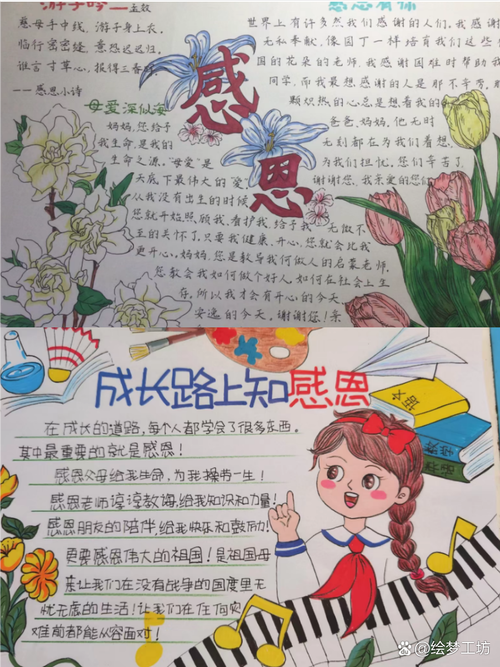 游子吟——孟郊
慈母手中线，游子身上衣，
临行密密缝，意恐迟迟归。
谁言寸草心，报得三春晖
——感恩小诗
母爱深似海
妈妈，您给予
我生命，是我的
生命之源，"母爱"是
天底下最伟大的爱，
从我没有出生的时候
您就开始照顾我、看护我，给予我无微不
至的关怀了。只要我健康、开心，您就会比我
更开心。妈妈，您是教导我们做人的启蒙老师，
您教会我如何做个好人，如何在社会上生
存，所以我才会有开心的今天，
安逸的今天，谢谢您！亲
感恩
感恩有你
世界上有许多然我们感谢的人们。我感谢
无私奉献，像园丁一样培育我们这些
国的花朵的老师，我感谢困难时帮助我
同学，而我最想感谢的人是那不辛劳，
颗炽热的心总是想着我的
爸爸、妈妈，他无时
无刻都在为我们着想，
为我们担忧，您们辛苦了，
谢谢您，我亲爱的您们
成长路上知感恩
在成长的道路，每个人都学会了很多东西。
其中最重要的就是感恩！
感恩父母给我生命，为我操劳一生！
感恩老师谆谆教诲，给我知识和力量！
感恩朋友的陪伴，给我快乐和鼓励！
更要感恩伟大的祖国！是祖国母
亲让我们在没有战争的国度里无
忧无虑的生活！让我们在任何灾
难前都能从容面对！
语文
数学
百家号/绘梦工坊